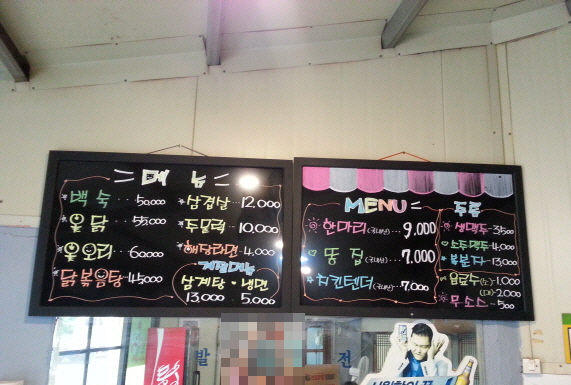 메뉴
백숙 ... 50,000
옻닭 ... 55,000
옻오리 ... 60,000
닭볶음탕 45,000
삼겹살 ... 12,000
주물럭 ... 10,000
해당라면 ... 4,000
계절메뉴
삼계탕 · 냉면
13,000 5,000
MENU
한마리 (국내산) ... 9,000
똥집 (국내산) ... 7,000
치킨텐더 (국내산) ... 7,000
주류
생맥주 - 3,500
소주맥주 - 4,000
복분자 - 13,000
음료수 (소) - 1,000
(대) - 2,000
무소스 - 500
발 전